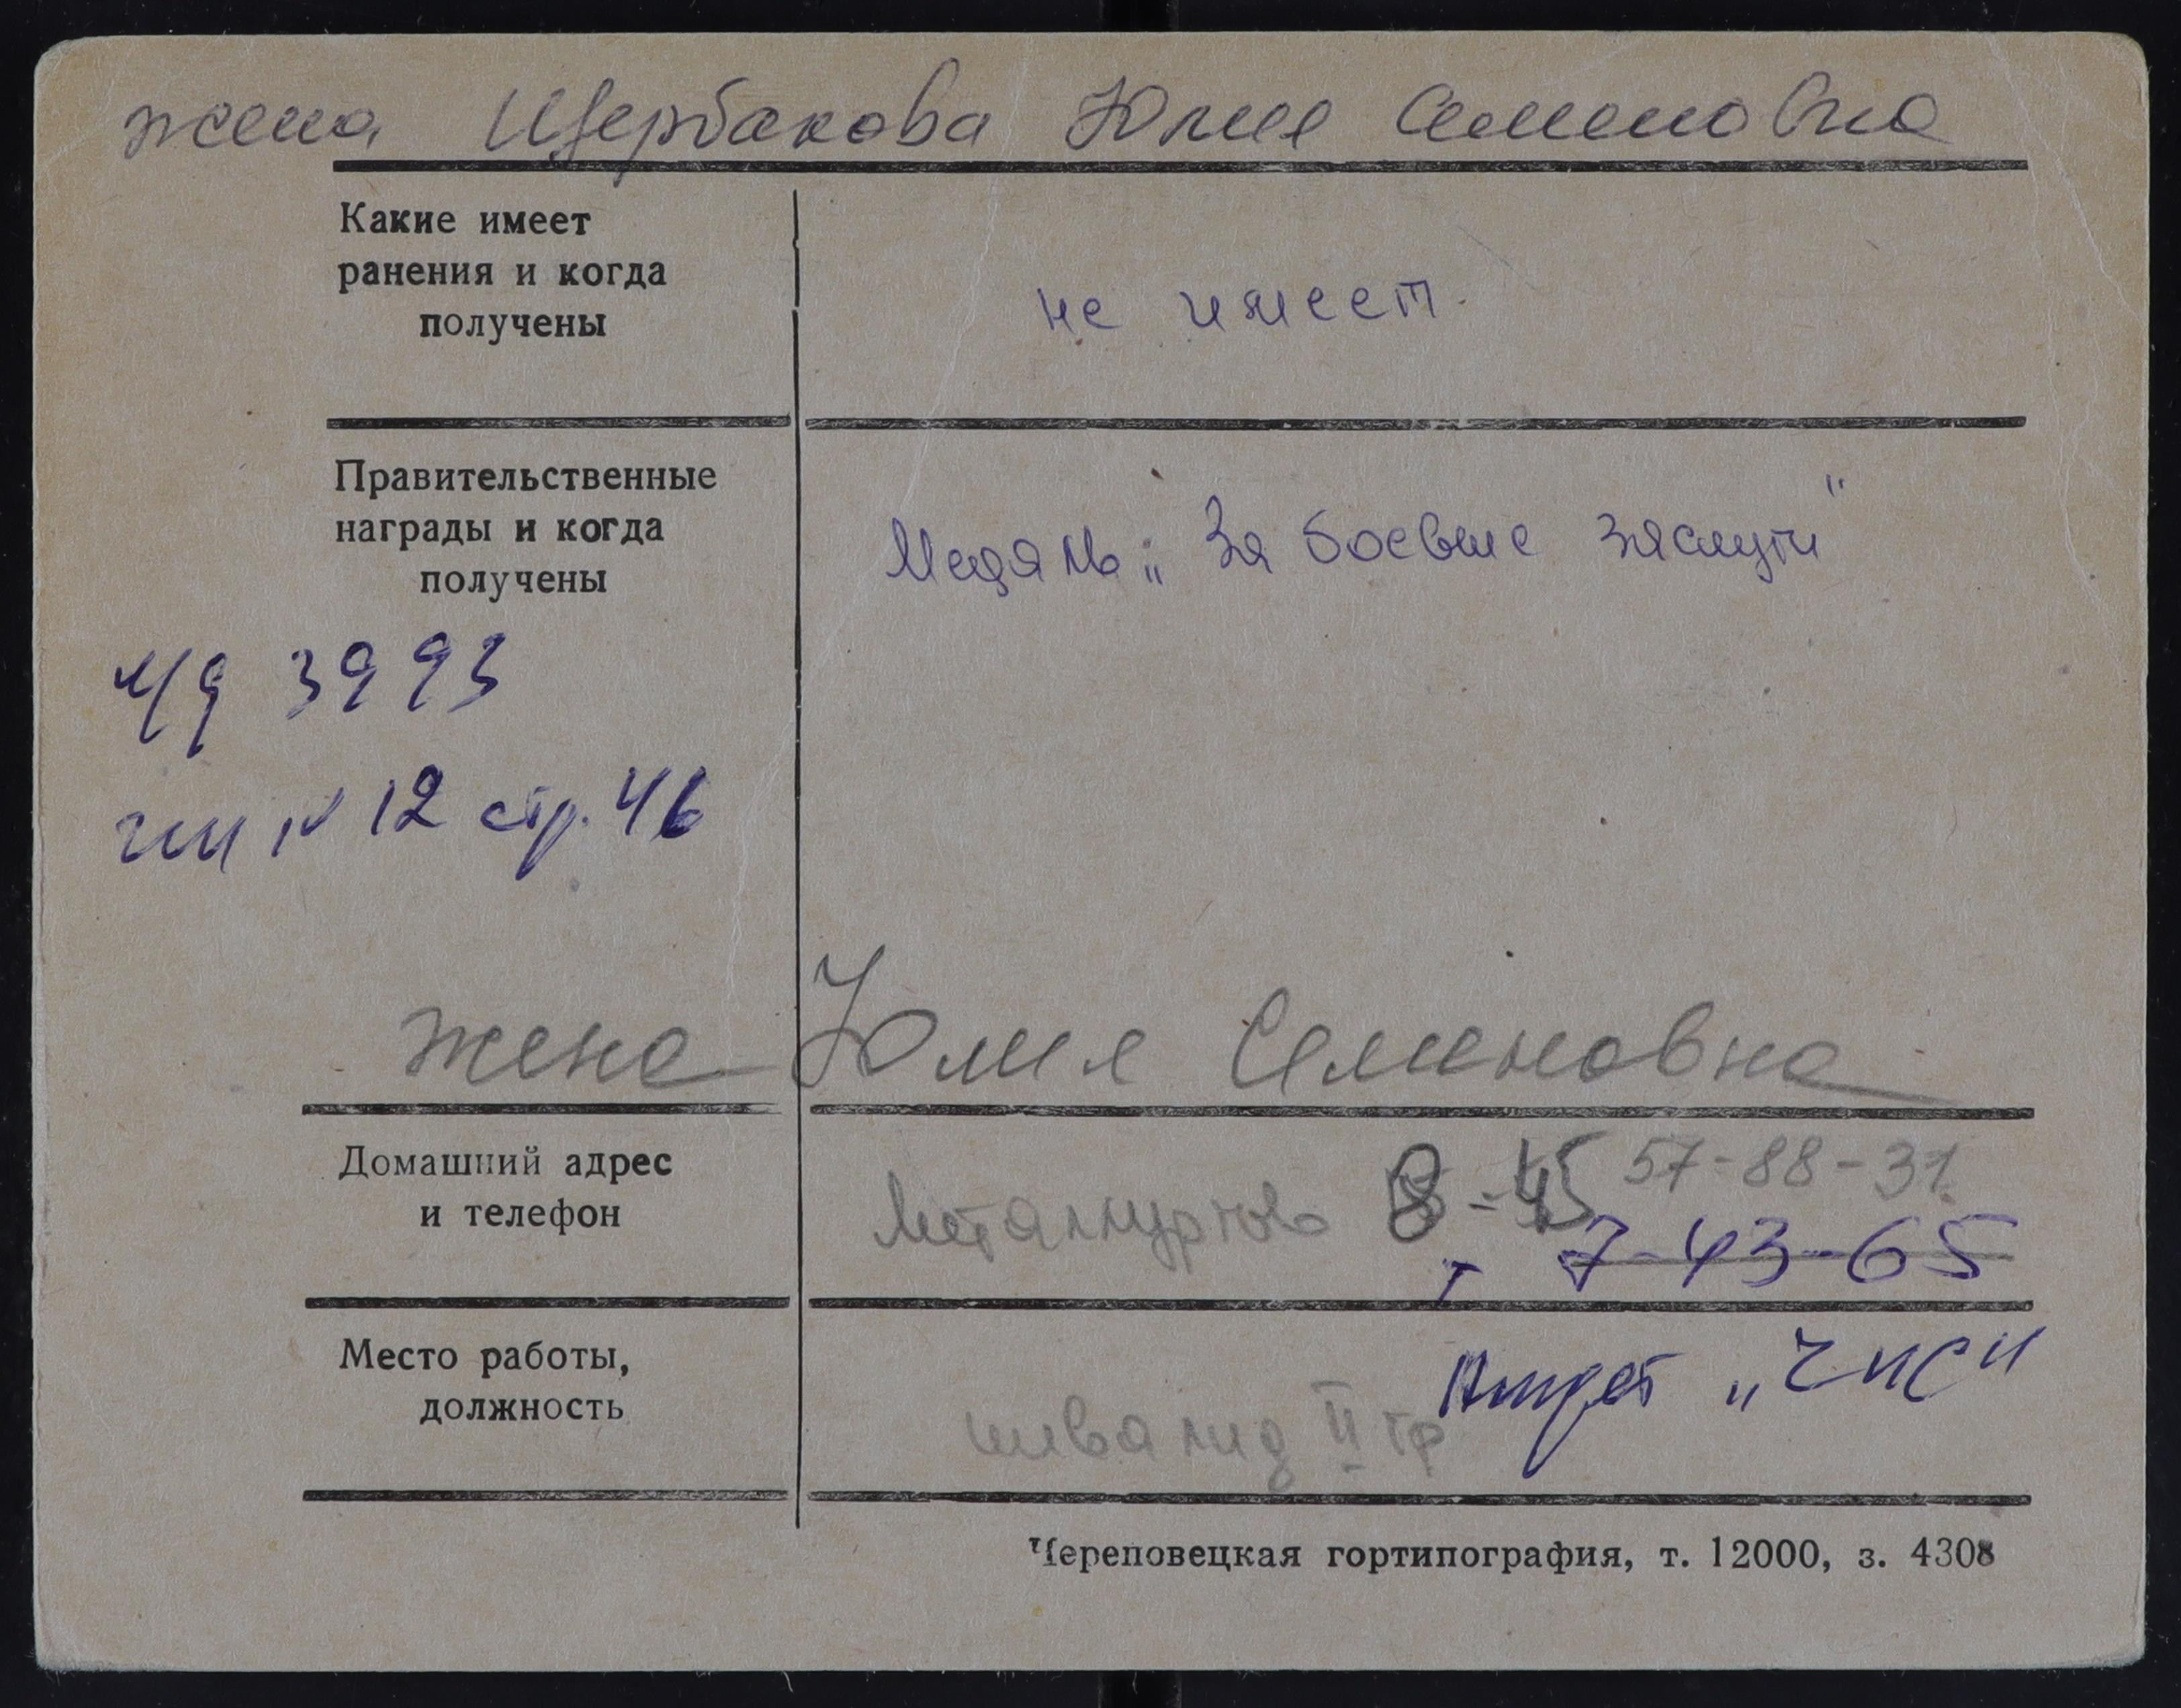 жена Щербакова Юлия Семеновна
Какие имеет
ранения и когда
получены
не имеет.
Правительственные
награды и когда
получены
Медаль: „За боевые заслуги"
3993
№ 12 стр. 46
жена Юлия Семеновна
Домашний адрес
и телефон
57-88-31
Металлургов 8-45
т 7-43-65
Место работы,
должность
инвалид II гр
Череповецкая гортипография, т. 12000, з. 4308